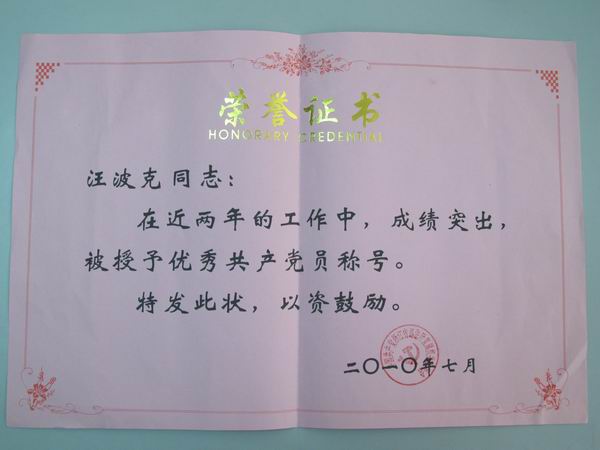 荣誉证书
HONORARY CREDENTIAL
汪波克同志：
在近两年的工作中，成绩突出，
被授予优秀共产党员称号。
特发此状，以资鼓励。
二〇一〇年七月